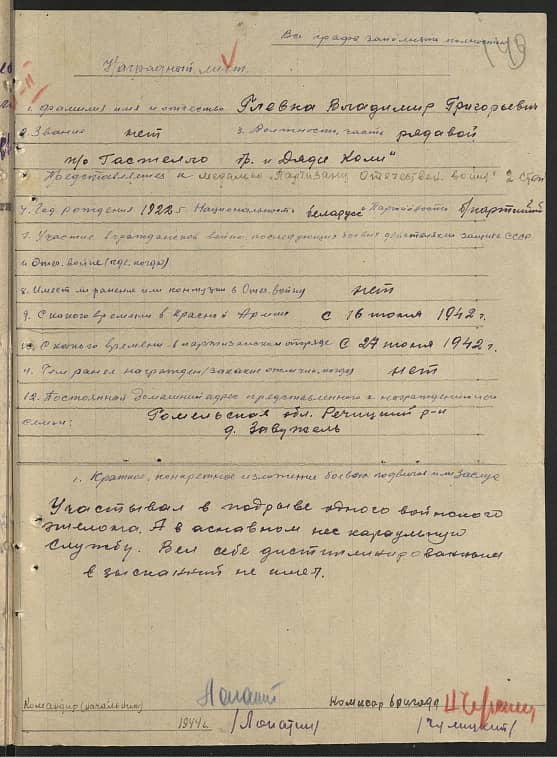 Все графы заполнять полностью
Наградный лист
1. Фамилия имя и отчество Главка Владимир Григорьевич
2. Звание нет 3. Должность, часть рядавой
п/о Гастелло бр. и Дяди Коли"
Представляется к медалью "Партизану Отечествен. войны" 2 степ
4. Год рождения 1922 г. Национальность беларус Партийность б/партийный
7. Участие в гражданской войне, последующих боевых действиях по защите СССР
и Отеч. войне (где, когда)
8. Имеет ли ранения или контузии в Отеч. войну нет
9. С какого времени в Красной Армии с 16 июля 1942 г.
10. С какого времени в партизанском отряде с 27 июня 1942 г.
11. Чем ранее награжден (за какие отличия, когда) нет
12. Постоянная домашний адрес представленного к награждению и его
семьи: Гомельская обл. Речицкий р-н
д. Завужель
1. Краткое, конкретное изложение боевых подвигов или заслуг
Участывал в подрыве одного войнского
эшелона. А в асновном нес караульную
службу. Вел себе дистиплинированным
взысканий не имел.
Командир (начальник) Комисар бригады
1944 г. /Лопатин/